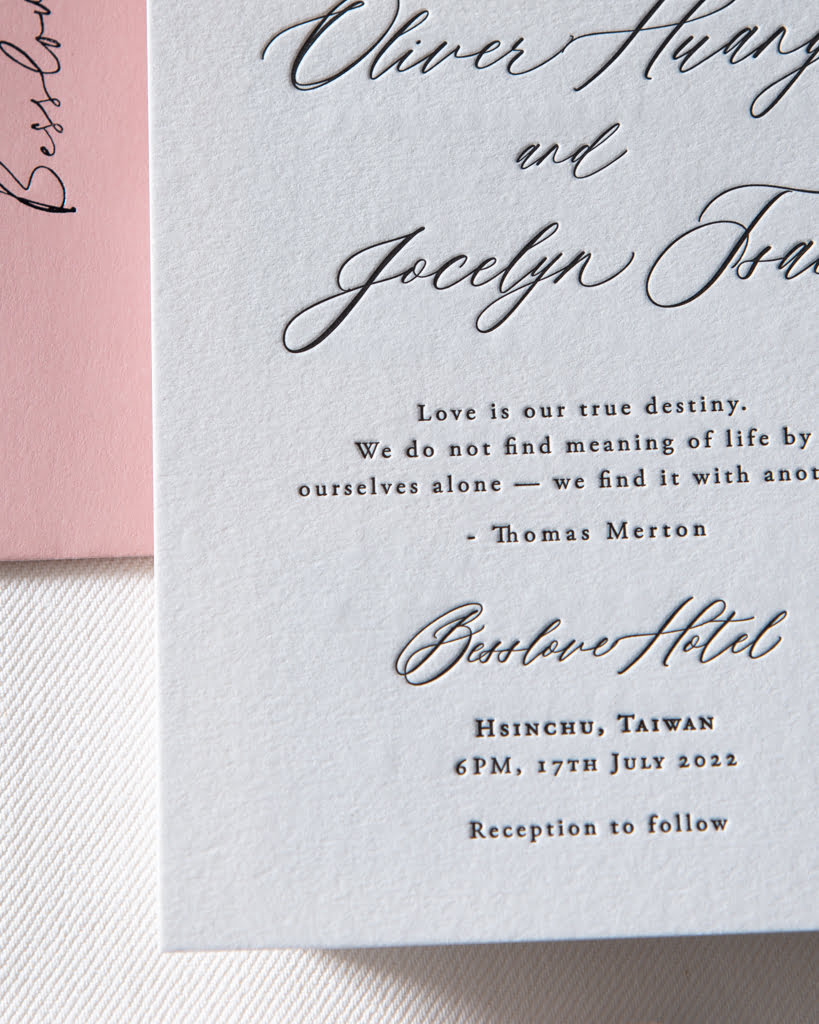 Besslov
Oliver Huang
and
Jocelyn Tsai
Love is our true destiny.
We do not find meaning of life by
ourselves alone — we find it with anot
- Thomas Merton
Besslove Hotel
Hsinchu, Taiwan
6PM, 17th July 2022
Reception to follow